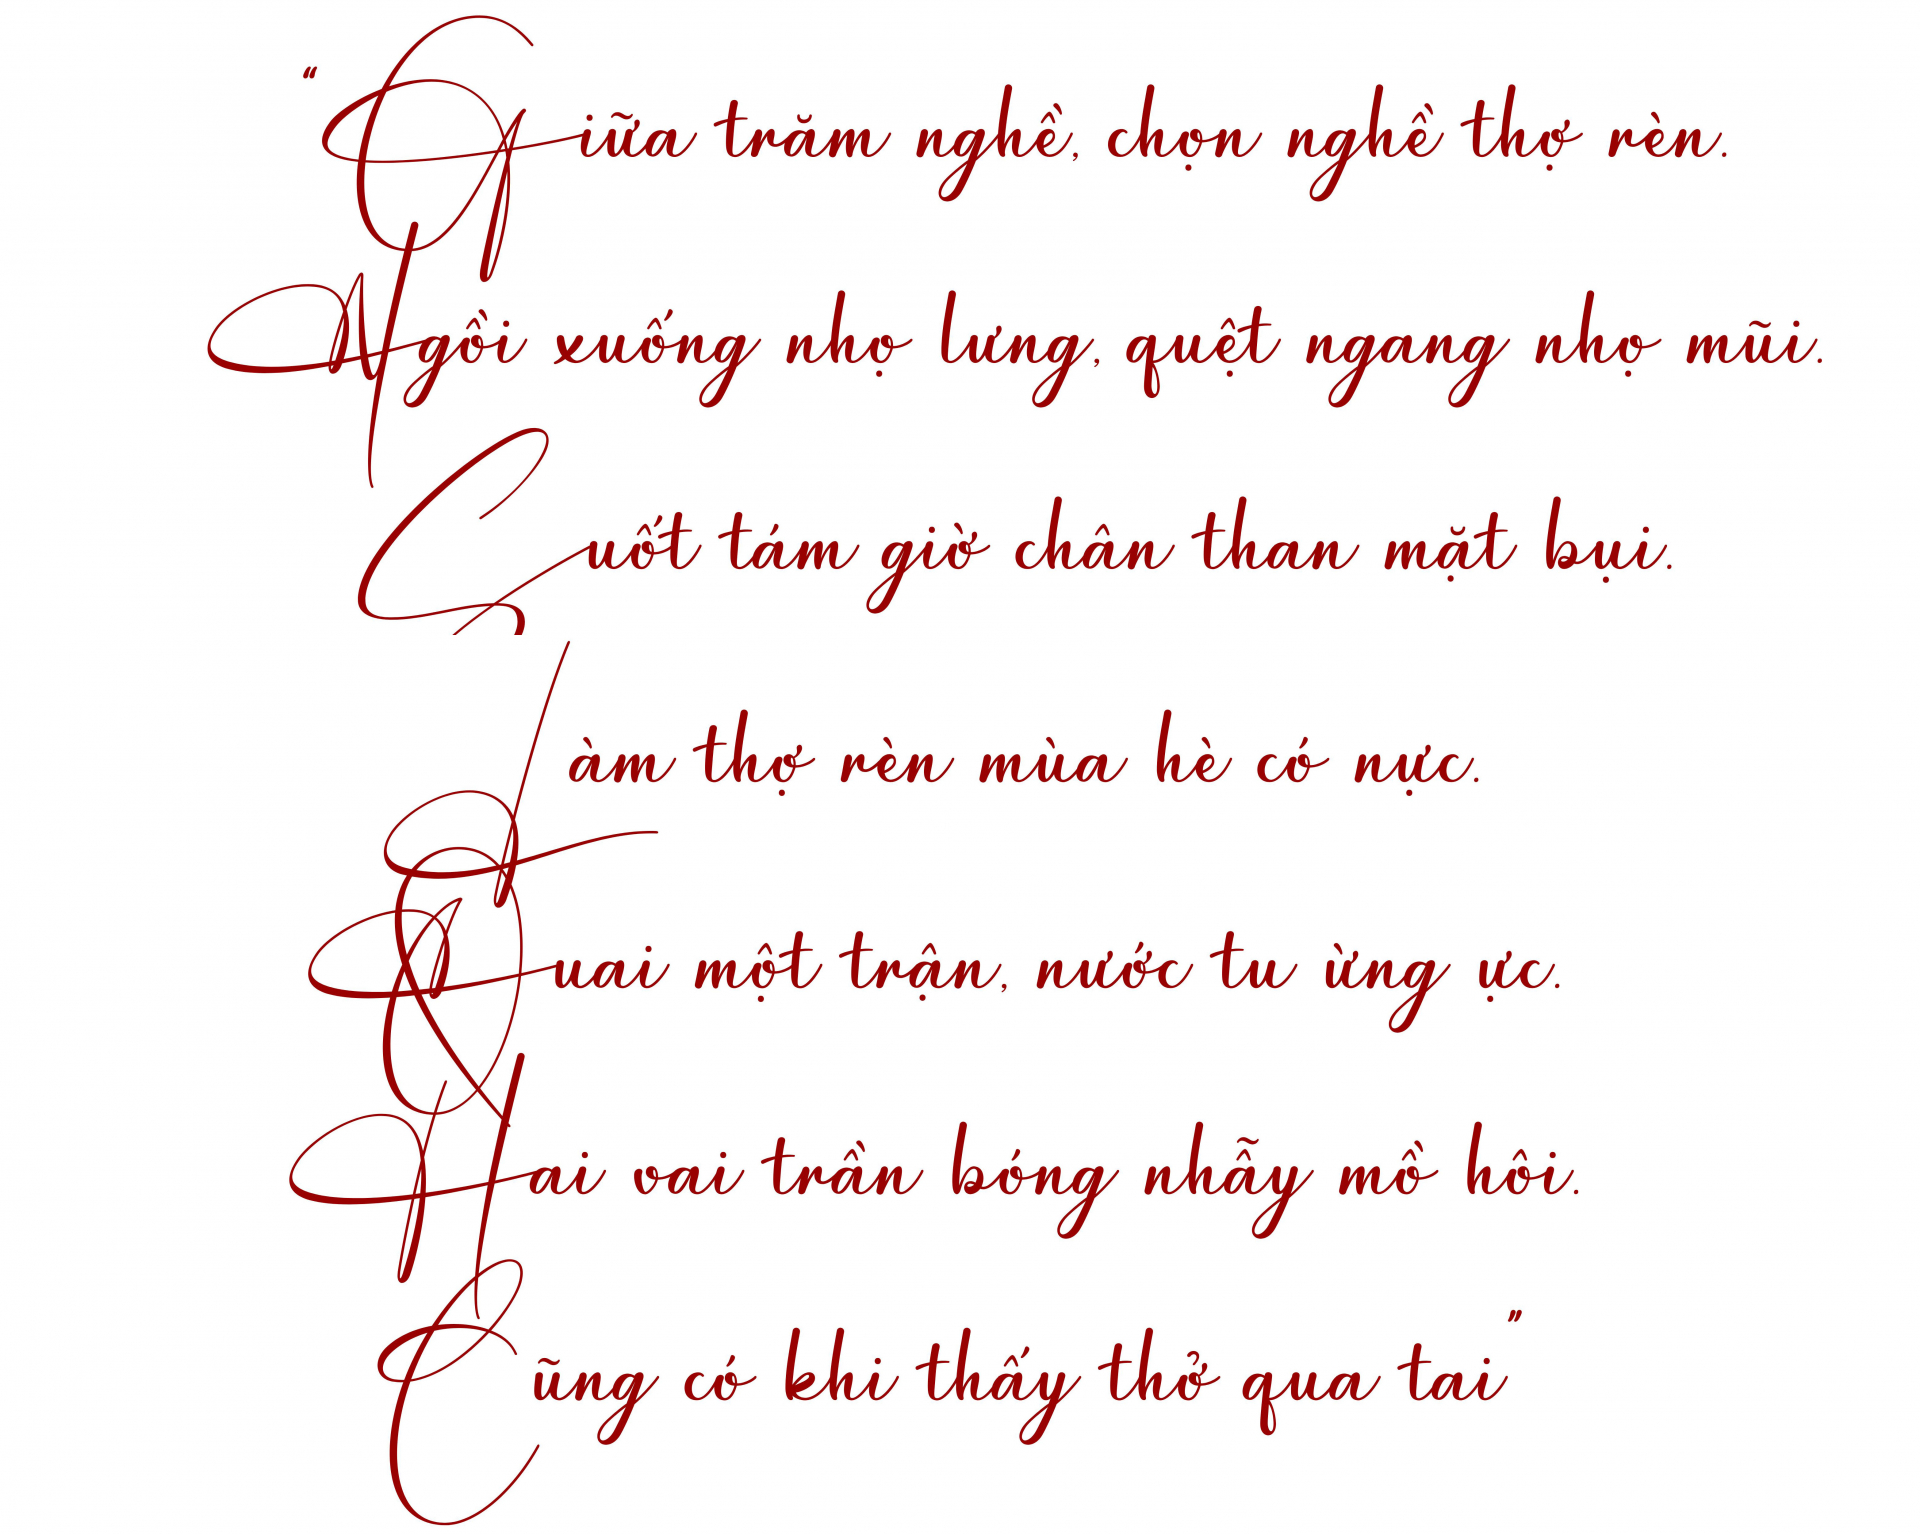 “Giữa trăm nghề, chọn nghề thợ rèn.
Ngồi xuống nhọ lưng, quệt ngang nhọ mũi.
Suốt tám giờ chân than mặt bụi.
Làm thợ rèn mùa hè có nực.
Quai một trận, nước tu ừng ực.
Hai vai trần bóng nhẫy mồ hôi.
Cũng có khi thấy thở qua tai”